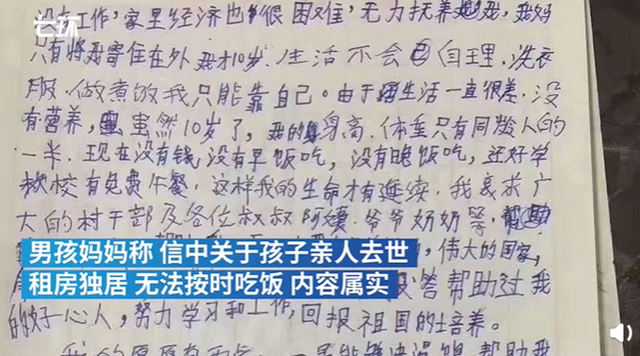 七环
没有工作，家里经济也很困难，无力抚养我，我妈
只有将我寄住在外 我才10岁 生活不会自理.洗衣
服.做煮饭我只能靠自己.由于生活一直很差.没
有营养，虽然10岁了，我的身高.体重只有同龄人的
一半.现在没有钱，没有早饭吃，没有晚饭吃，还好学
校有免费午餐.这样我的生命才有连续.我哀求广
大的村干部及各位叔叔阿姨.爷爷奶奶等，
男孩妈妈称 信中关于孩子亲人去世
伟大的国家，
租房独居 无法按时吃饭 内容属实
答帮助过我
的好心人，努力学习和工作，回报祖国的培养。